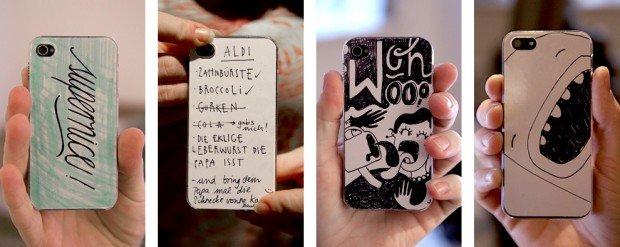 supernice!
ALDI
· ZAHNBÜRSTE ✓
· BROCCOLI ✓
· GURKEN
· COLA → gabs
nich!
· DIE EKLIGE
LEBERWURST DIE
PAPA ISST
- und bring dem
Papa mal die
Schnecke vonne